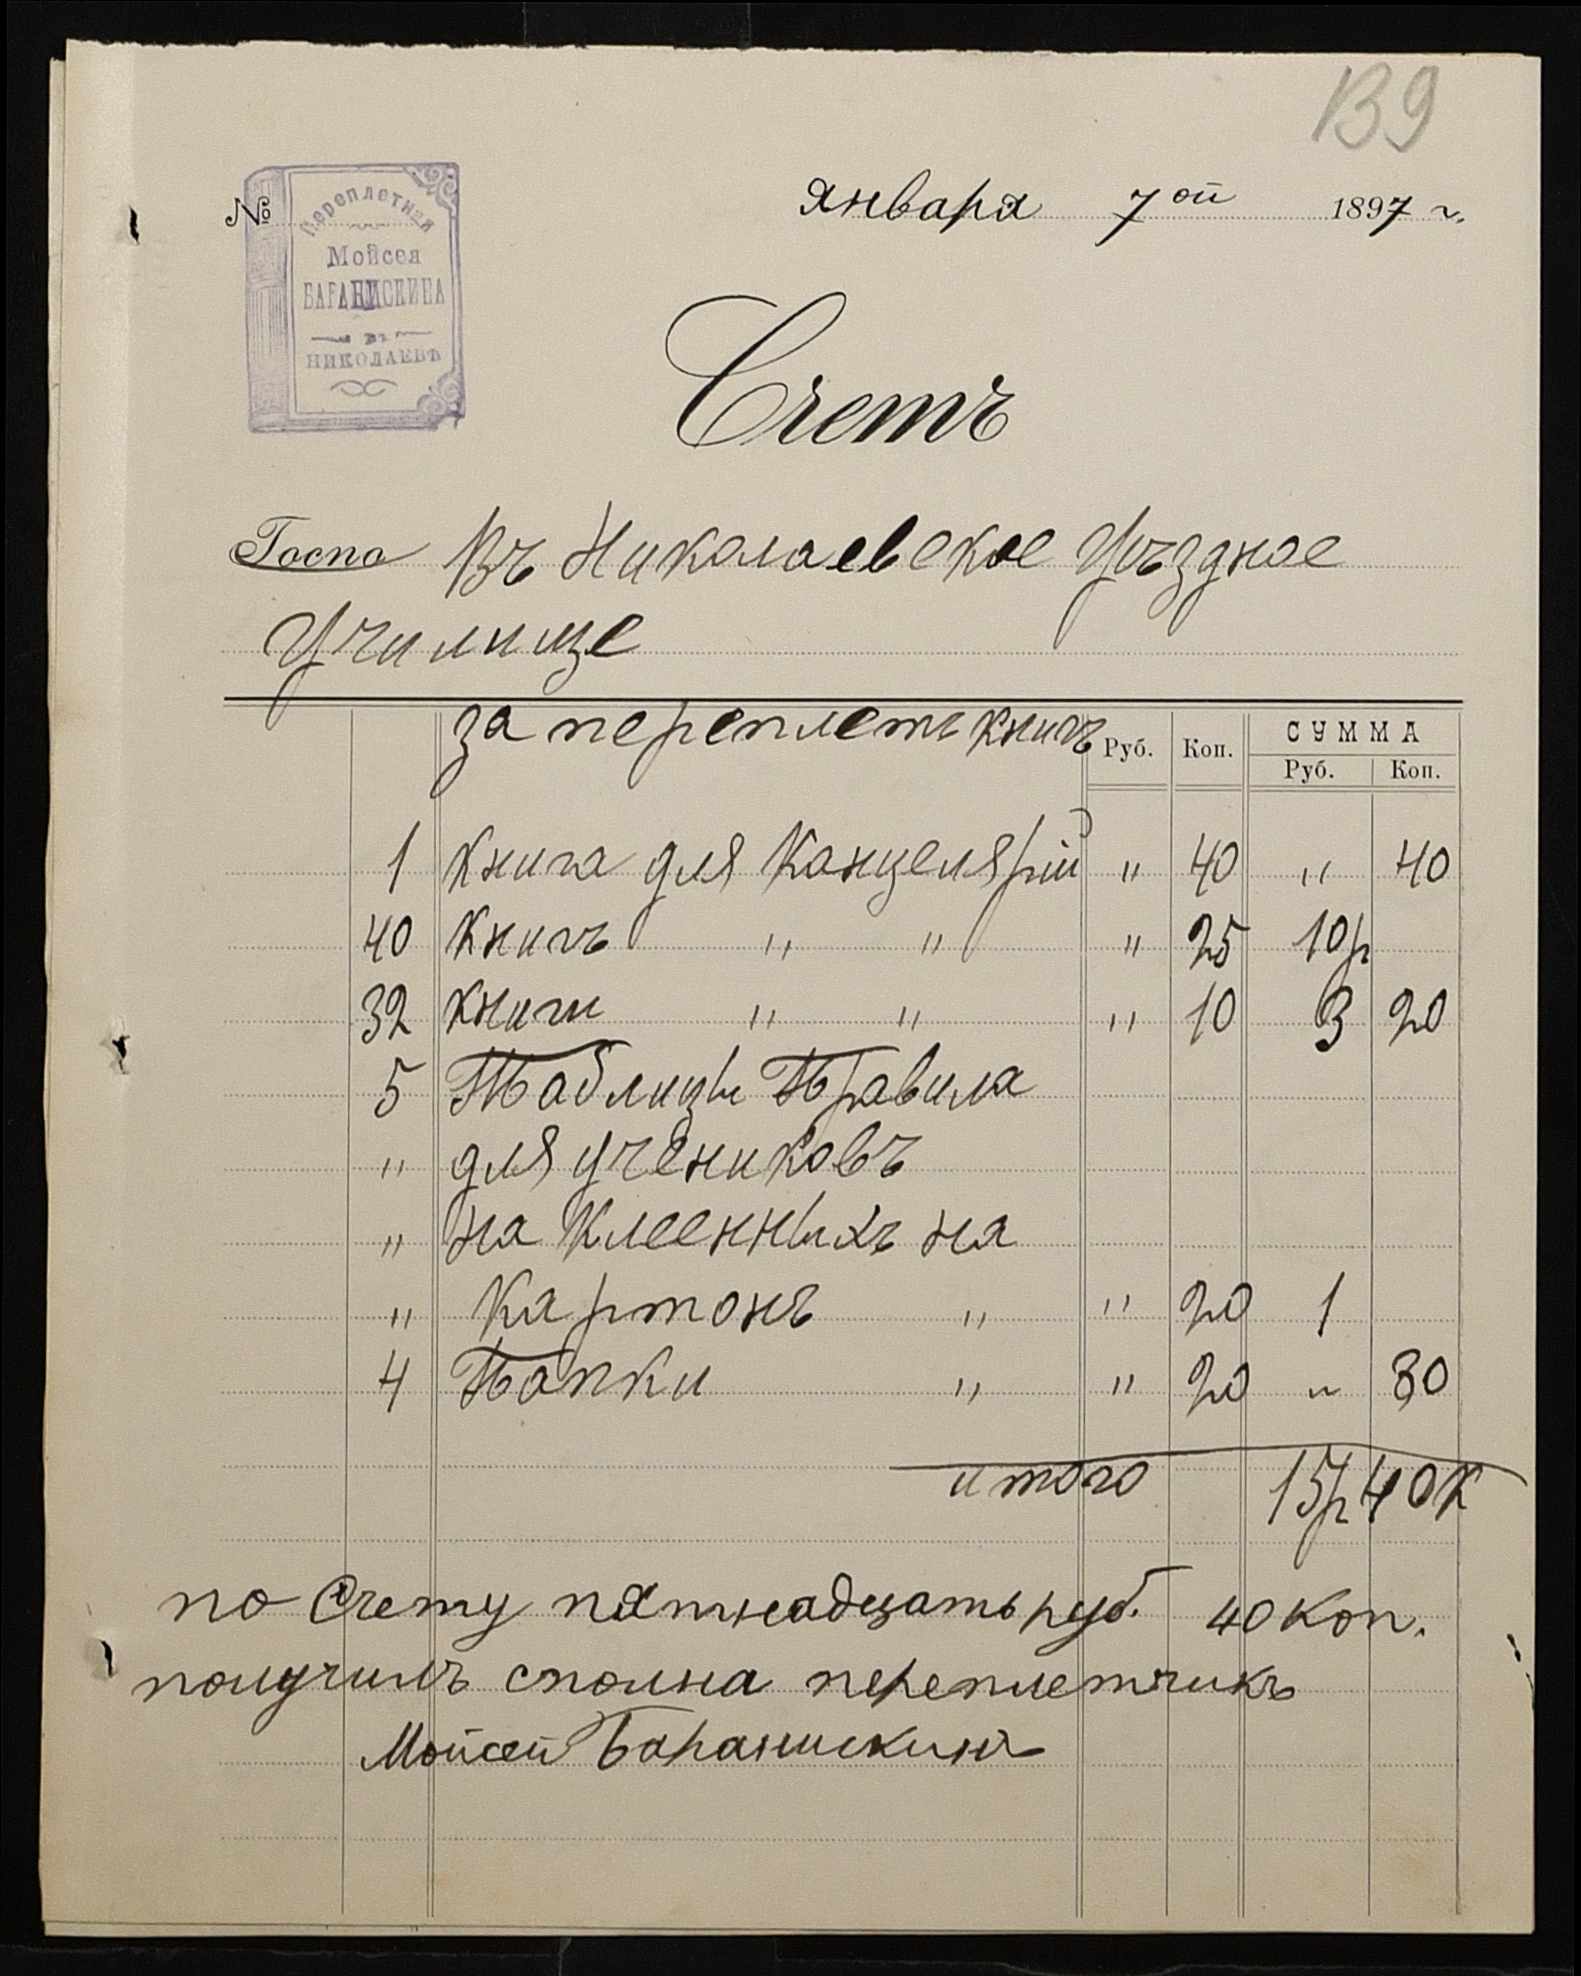 139
№
Переплетная
Мойсея
БАРАНИСКИНА
въ
НИКОЛАЕВѢ
Января 7ой 1897 г.
Счетъ
Госпо Въ Николаевское Уѣздное
Училище
за переплетъ книгъ Руб. Коп. СУММА
Руб. Коп.
1 Книга для Канцелярій " 40 " 40
40 Книгъ " " " 25 10р
32 Книги " " " 10 3 20
5 Таблицы Правила
" для учениковъ
" на Клеенныхъ на
" Картонъ " " 20 1
4 Папки " " 20 " 80
итого 15р 40к
по Счету пятнадцать руб. 40 Коп.
получилъ сполна переплетчикъ
Мойсей Бараниskинъ